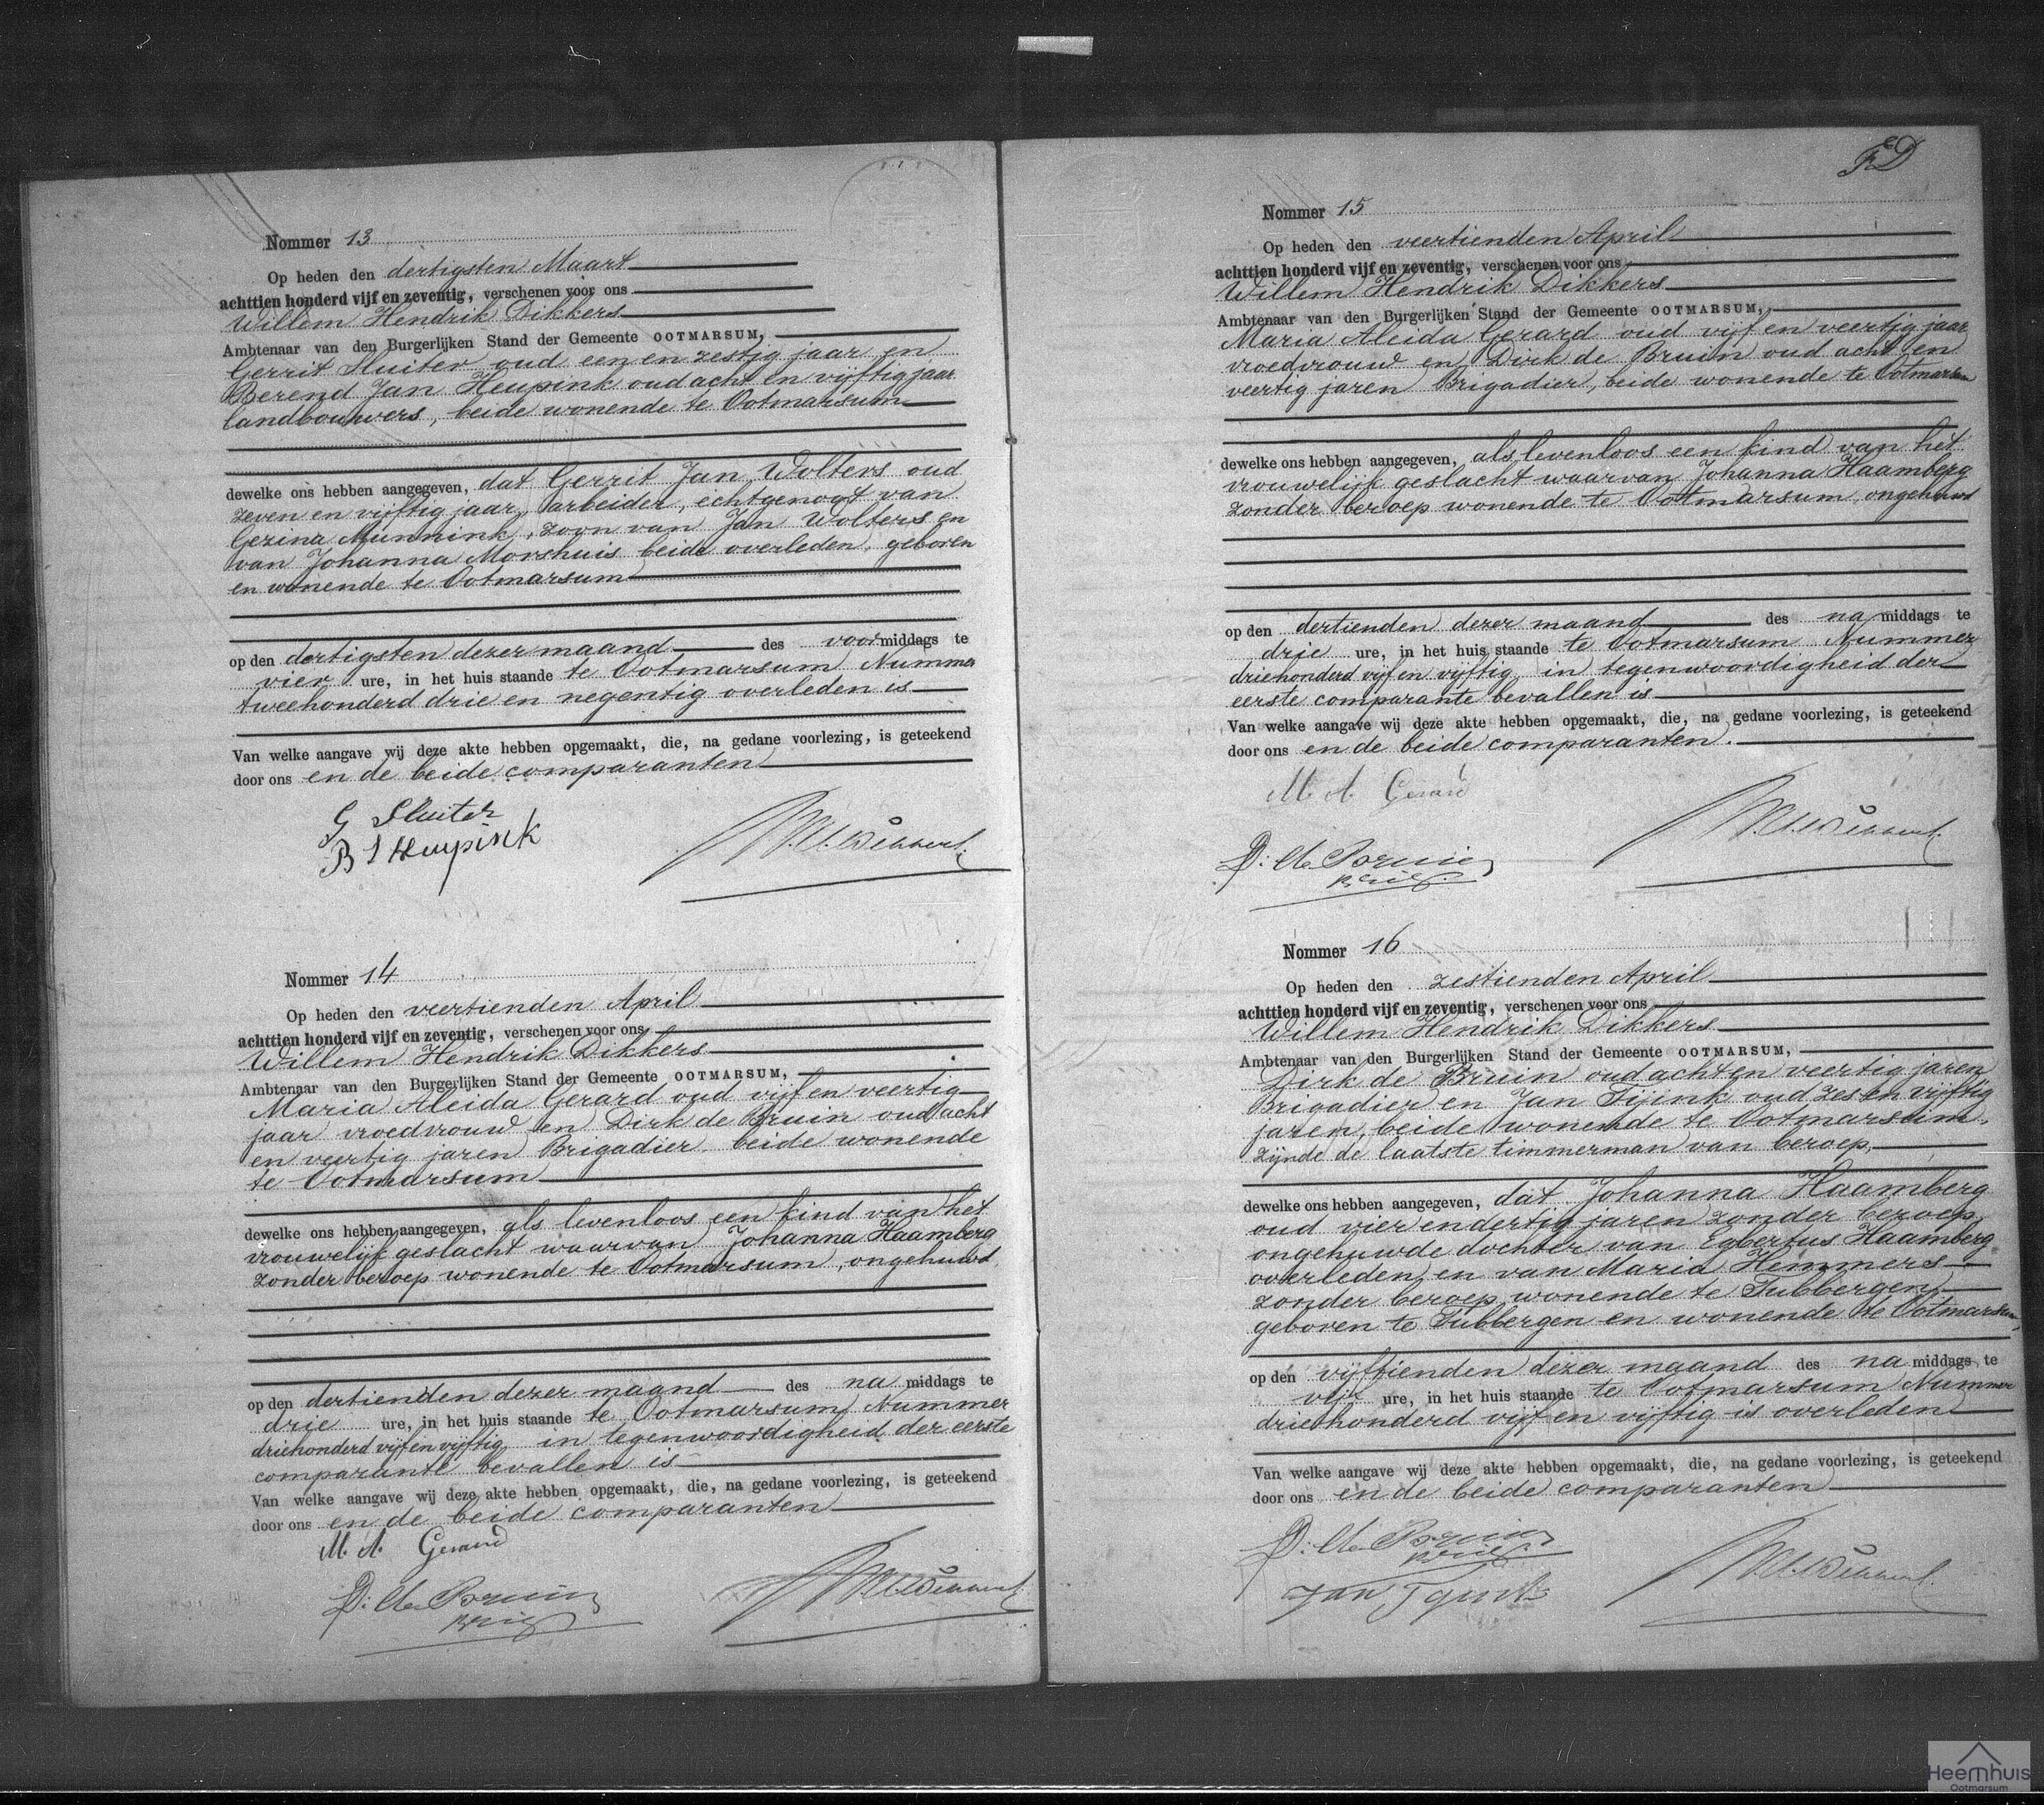 Nommer 13
Op heden den dertigsten Maart
achttien honderd vijf en zeventig, verschenen voor ons
Willem Hendrik Dikkers
Ambtenaar van den Burgerlijken Stand der Gemeente OOTMARSUM,
Gerrit Sluiter oud een en zestig jaar en
Berend Jan Heupink oud acht en vijftig jaar
landbouwers, beide wonende te Ootmarsum
dewelke ons hebben aangegeven, dat Gerrit Jan Wolters oud
zeven en vijftig jaar, arbeider, echtgenoot van
Gezina Munnink, zoon van Jan Wolters en
van Johanna Morshuis beide overleden, geboren
en wonende te Ootmarsum
op den dertigsten dezer maand des voormiddags te
vier ure, in het huis staande te Ootmarsum Nummer
tweehonderd drie en negentig overleden is
Van welke aangave wij deze akte hebben opgemaakt, die, na gedane voorlezing, is geteekend
door ons en de beide comparanten
G Sluiter
B J Heupink
W.H. Dikkers
Nommer 14
Op heden den veertienden April
achttien honderd vijf en zeventig, verschenen voor ons
Willem Hendrik Dikkers
Ambtenaar van den Burgerlijken Stand der Gemeente OOTMARSUM,
Maria Aleida Gerard oud vijf en veertig
jaar vroedvrouw en Dirk de Bruin oud acht
en veertig jaren Brigadier, beide wonende
te Ootmarsum
dewelke ons hebben aangegeven, als levenloos een kind van het
vrouwelijk geslacht waarvan Johanna Haamberg
zonder beroep wonende te Ootmarsum, ongehuwd
op den dertienden dezer maand des na middags te
drie ure, in het huis staande te Ootmarsum Nummer
driehonderd vijf en vijftig in tegenwoordigheid der eerste
comparante bevallen is
Van welke aangave wij deze akte hebben opgemaakt, die, na gedane voorlezing, is geteekend
door ons en de beide comparanten
M. A. Gerard
D: de Bruin
Brig
W.H. Dikkers
ED
Nommer 15
Op heden den veertienden April
achttien honderd vijf en zeventig, verschenen voor ons
Willem Hendrik Dikkers
Ambtenaar van den Burgerlijken Stand der Gemeente OOTMARSUM,
Maria Aleida Gerard oud vijf en veertig jaar
vroedvrouw en Dirk de Bruin oud acht en
veertig jaren Brigadier, beide wonende te Ootmarsum
dewelke ons hebben aangegeven, als levenloos een kind van het
vrouwelijk geslacht waarvan Johanna Haamberg
zonder beroep wonende te Ootmarsum, ongehuwd
op den dertienden dezer maand des na middags te
drie ure, in het huis staande te Ootmarsum Nummer
driehonderd vijf en vijftig in tegenwoordigheid der
eerste comparante bevallen is
Van welke aangave wij deze akte hebben opgemaakt, die, na gedane voorlezing, is geteekend
door ons en de beide comparanten.
M. A. Gerard
D: de Bruin
Brig.
W.H. Dikkers
Nommer 16
Op heden den zestienden April
achttien honderd vijf en zeventig, verschenen voor ons
Willem Hendrik Dikkers
Ambtenaar van den Burgerlijken Stand der Gemeente OOTMARSUM,
Dirk de Bruin oud acht en veertig jaren
Brigadier en Jan Tijink oud zes en vijftig
jaren, beide wonende te Ootmarsum,
zijnde de laatste timmerman van beroep,
dewelke ons hebben aangegeven, dat Johanna Haamberg
oud vier en dertig jaren zonder beroep,
ongehuwde dochter van Egbertus Haamberg
overleden en van Maria Hemmers
zonder beroep, wonende te Tubbergen,
geboren te Tubbergen en wonende te Ootmarsum,
op den vijftienden dezer maand des na middags te
vijf ure, in het huis staande te Ootmarsum Nummer
driehonderd vijf en vijftig is overleden
Van welke aangave wij deze akte hebben opgemaakt, die, na gedane voorlezing, is geteekend
door ons en de beide comparanten
D: de Bruin
Brig.
Jan Tijink
W.H. Dikkers
Heemhuis
Ootmarsum